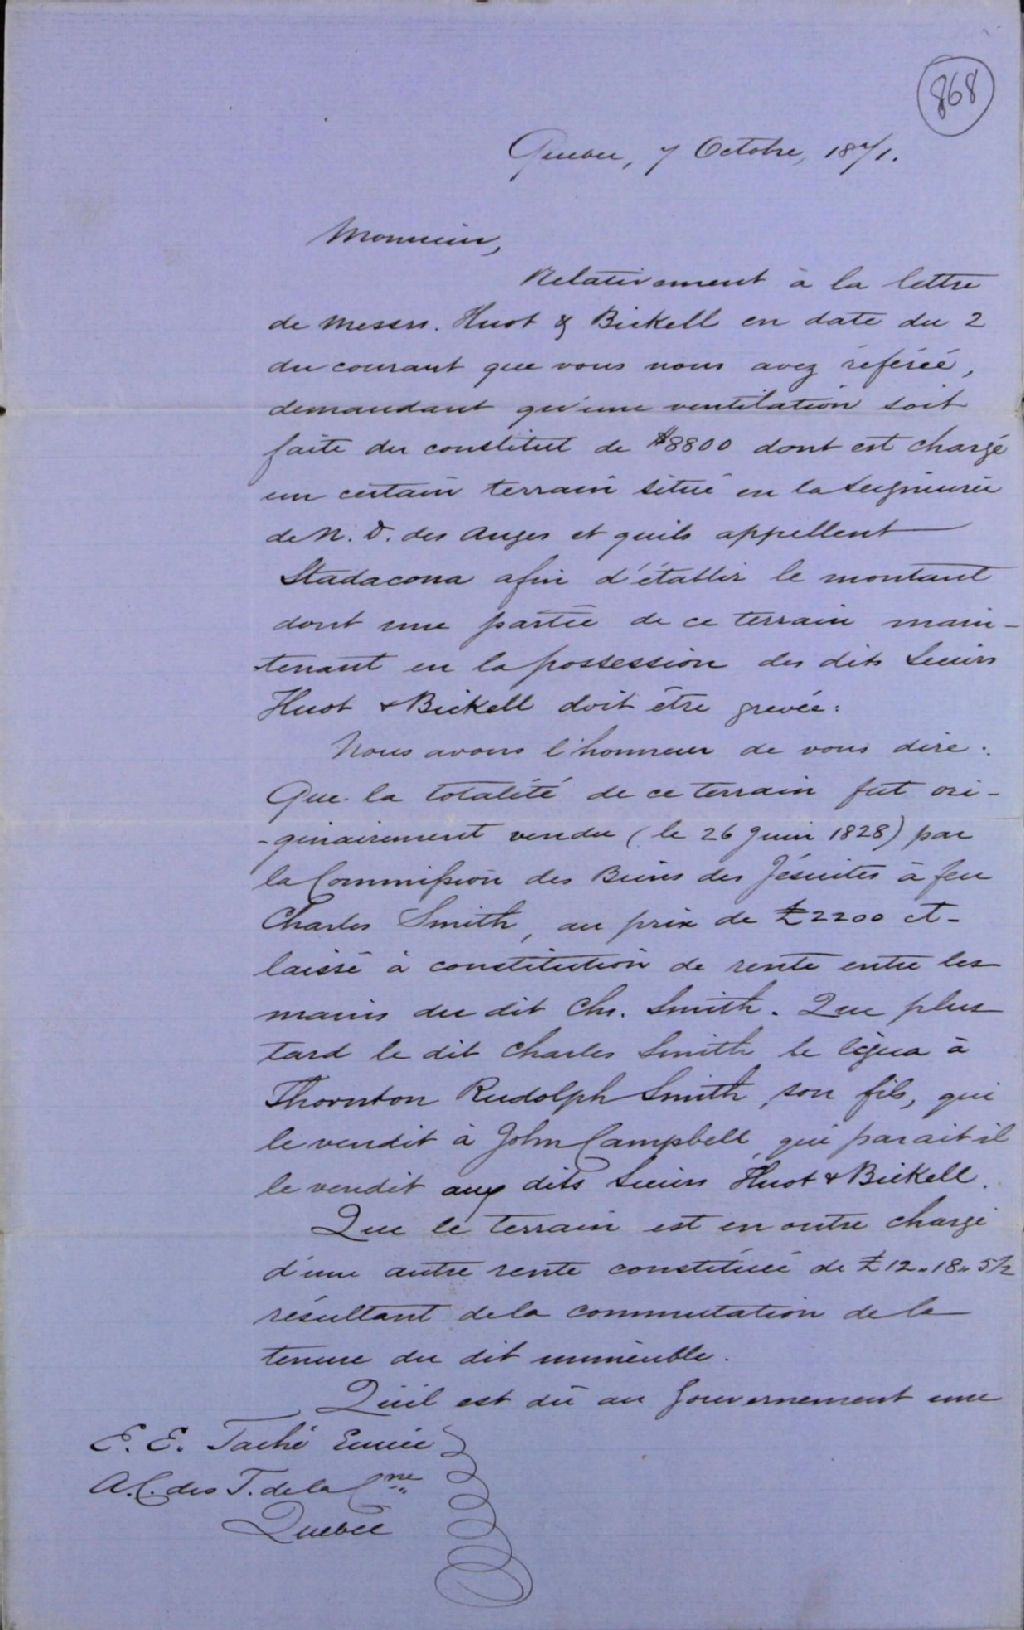 868
Quebec, 7 Octobre, 1871.
Monsieur,
Relativement à la lettre
de Messrs. Huot & Bickell en date du 2
du courant que vous nous avez référée,
demandant qu'une ventilation soit
faite du constitut de $8800 dont est chargé
un certain terrain situé en la Seigneurie
de N. D. des Anges et qu'ils appellent
Stadacona afin d'établir le montant
dont une partie de ce terrain main-
tenant en la possession des dits Sieurs
Huot & Bickell doit être grevée:
Nous avons l'honneur de vous dire:
Que la totalité de ce terrain fut ori-
-ginairement vendu (le 26 Juin 1828) par
la Commission des Biens des Jésuites à feu
Charles Smith, au prix de £2200 et
laissé à constitution de rente entre les
mains du dit Chs. Smith. Que plus
tard le dit Charles Smith le légua à
Thornton Rudolph Smith, son fils, qui
le vendit à John Campbell qui parait il
le vendit aux dits Sieurs Huot & Bickell.
Que le terrain est en outre chargé
d'une autre rente constituée de £12.,18.,5½
résultant de la commutation de la
tenure du dit immeuble.
Qu'il est dû au Gouvernement une
E. E. Taché Ecuier
A.C. des T. de la Cne
Quebec